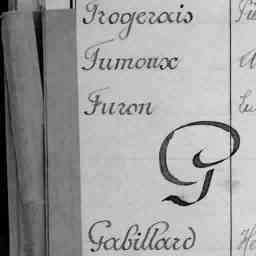 Frogerais
Fumoux
Furon
G
Gabillard